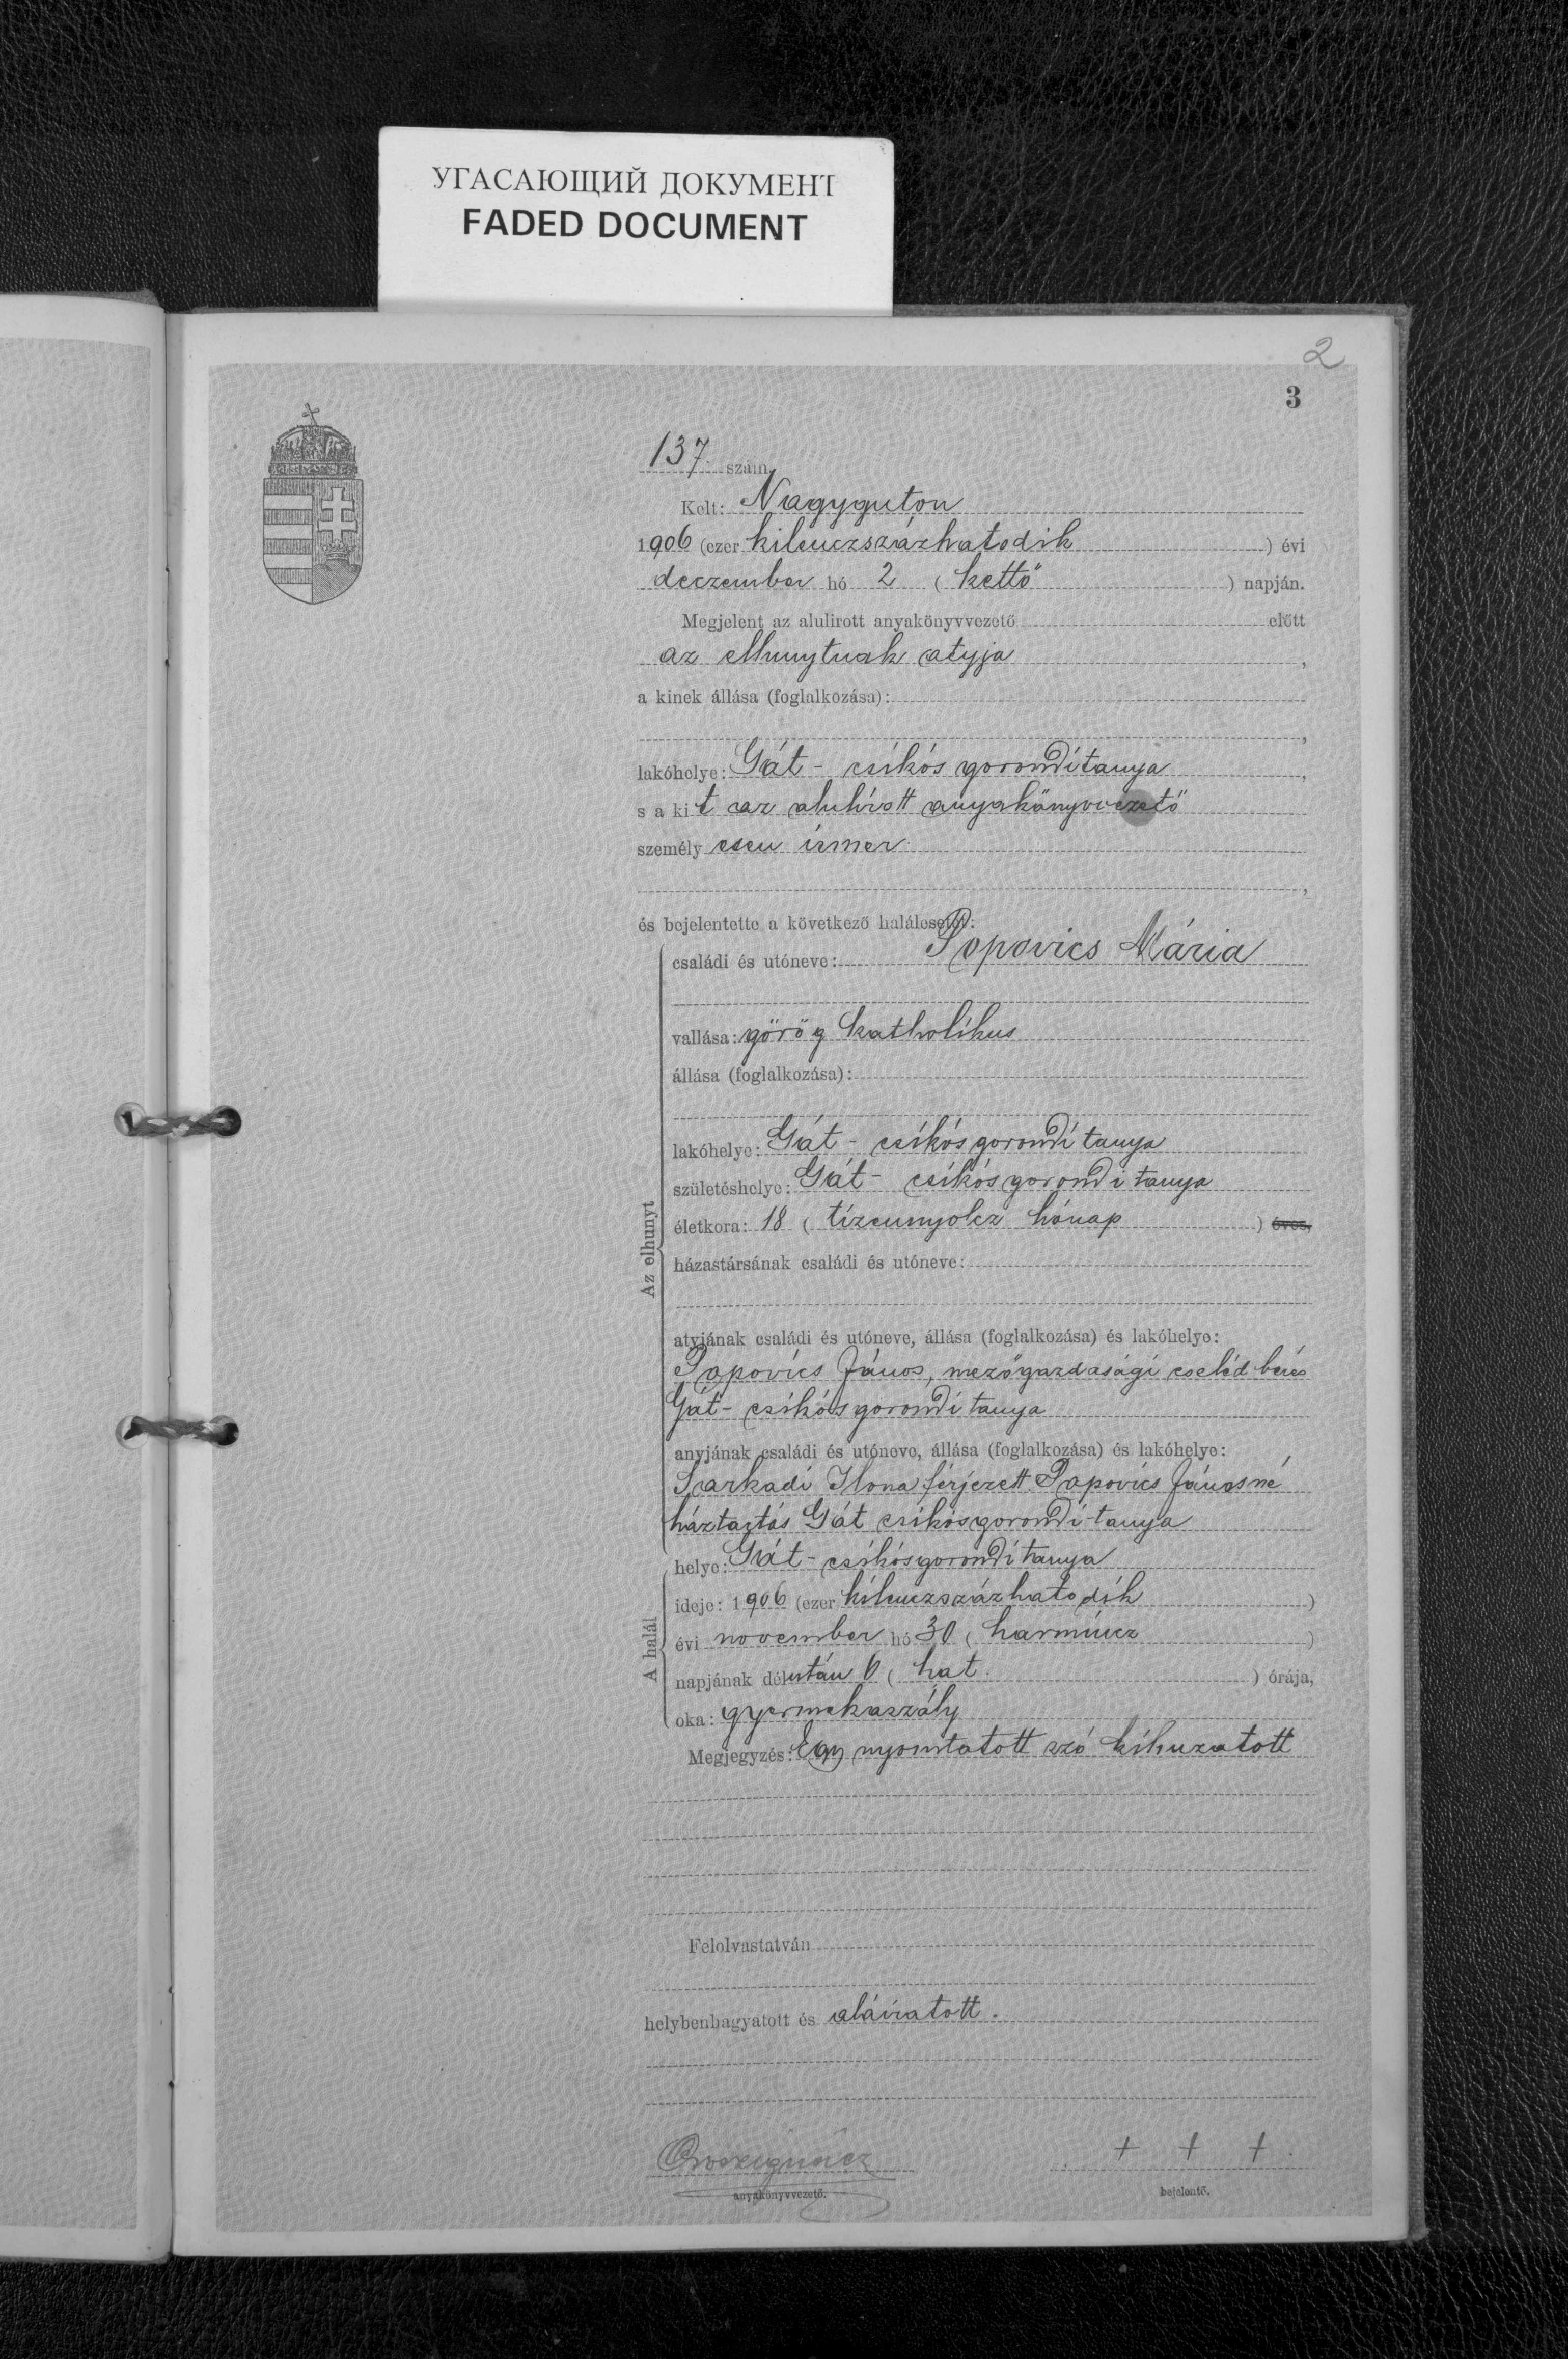 УГАСАЮЩИЙ ДОКУМЕНТ
FADED DOCUMENT
2
3
137. szám.
Kelt: Nagyguton
1906 (ezer kilenczszázhatodik) évi
deczember hó 2 (kettő) napján.
Megjelent az alulirott anyakönyvvezető előtt
az elhunytnak atyja,
a kinek állása (foglalkozása):
lakóhelye: Gát - csikós gorondi tanya,
s a kit az alulírott anyakönyvvezető
személyesen ismer.
és bejelentette a következő halálesetet:
Az elhunyt
családi és utóneve: Popovics Mária
vallása: görög katholikus
állása (foglalkozása):
lakóhelye: Gát - csikósgorondi tanya
születéshelye: Gát - csikósgorondi tanya
életkora: 18 (tizennyolcz hónap) éves,
házastársának családi és utóneve:
atyjának családi és utóneve, állása (foglalkozása) és lakóhelye:
Popovics János, mezőgazdasági cseléd béres
Gát - csikósgorondi tanya
anyjának családi és utóneve, állása (foglalkozása) és lakóhelye:
Sarkadi Ilona férjezett Popovics Jánosné
háztartás Gát csikósgorondi-tanya
A halál
helye: Gát - csikósgorondi tanya
ideje: 1906 (ezer kilenczszázhatodik)
évi november hó 30 (harmincz)
napjának délután 6 (hat.) órája,
oka: gyermekaszály
Megjegyzés: Egy nyomtatott szó kihuzatott
Felolvastatván
helybenhagyatott és aláiratott.
Orosz Ignácz + + +
anyakönyvvezető. bejelentő.